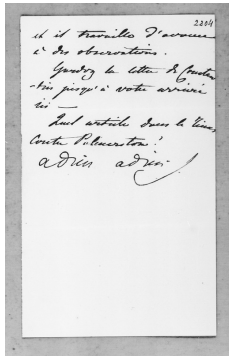 2204
et il travaille d'avance
à des observations.
Gardez la lettre de Constan
-tin jusqu'à votre arrivée
ici —
Quel article dans le Times
contre Palmerston !
adieu adieu